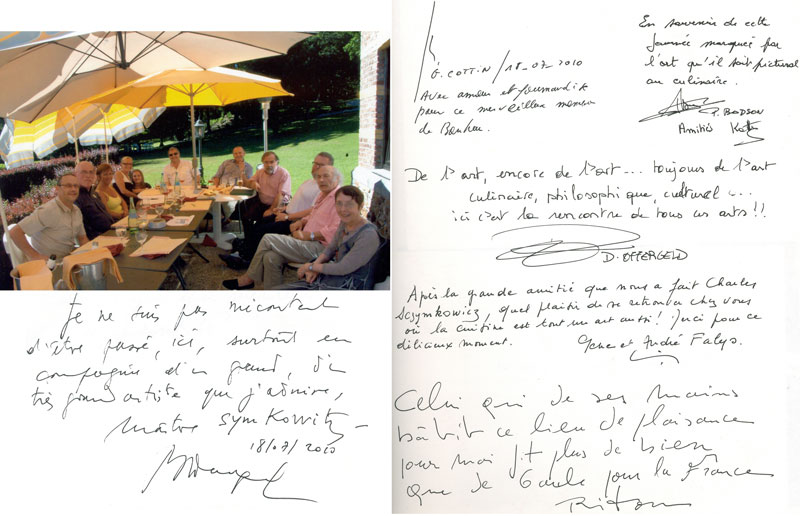 Je ne suis pas mécontent
d'être passé, ici, surtout en
compagnie d'un grand, d'un
très grand artiste que j'admire,
Maître SYMKOWITZ
18/07/2010
G. COTTIN / 18_07_2010
Avec amour et gourmandise
pour ce merveilleux moment
de Bonheur.
En souvenir de cette
Journée marquée par
l'art qu'il soit pictural
ou culinaire.
P. BODSON
Amitiés
De l'art, encore de l'art... toujours de l'art
culinaire, philosophique, culturel...
ici c'est la rencontre de tous ces arts!!
D. OFFERGELD
Après la grande amitié que nous a fait Charles
Scsymkowicz, quel plaisir de se retrouver chez vous
où la cuisine est tout un art aussi! Merci pour ce
délicieux moment. et André Falys.
Celui qui de ses mains
bâtit ce lieu de plaisance
pour moi fit plus de bien
que de Gaule pour la France